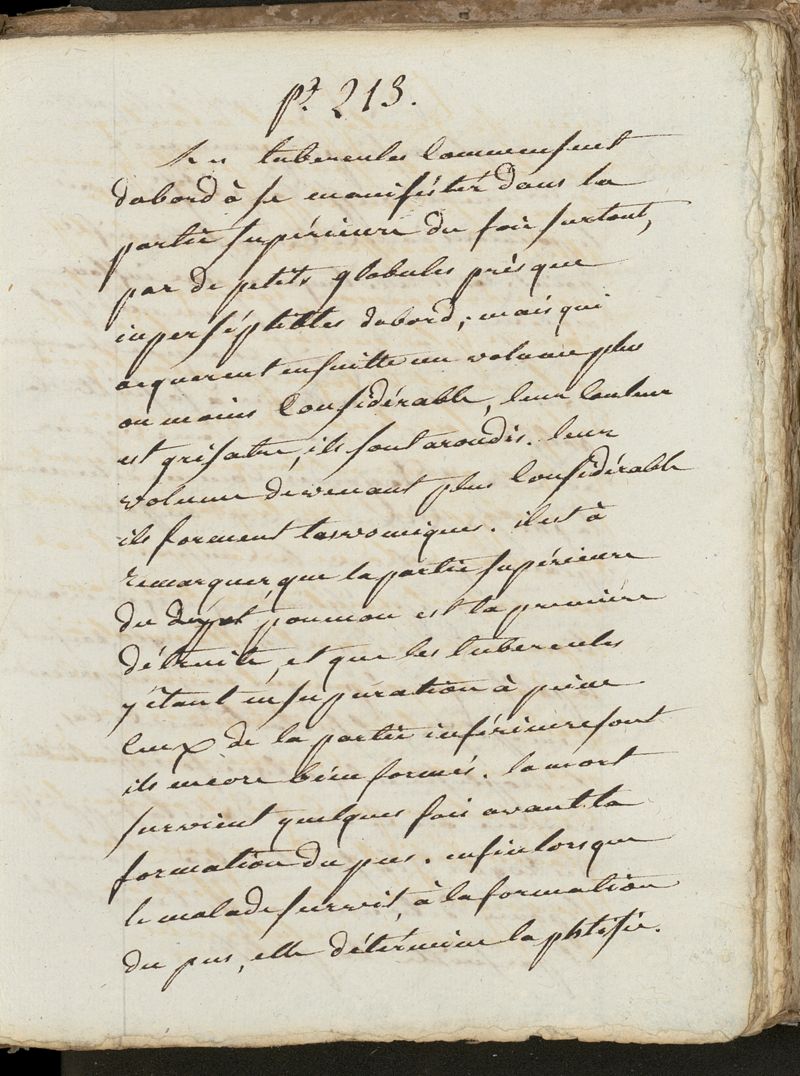 pe. 213.
Les tubercules Commensent
dabord à se manifester dans la
partie supérieure du foie surtout,
par de petits globules présque
imperséptibles dabord; mais qui
acquerent ensuitte un volume plus
ou moins Considérable, leur Couleur
est grisatre, ils sont arondis. leur
volume devenant plus Considérable
ils forment les vomiques. il est à
remarquer, que la partie supérieure
du poumon est la premiére
détruite, et que les tubercules
y étant en supuration à peine
Ceux de la partie inférieure sont
ils encore bien formés. la mort
survient quelques fois avant la
formation du pus. enfin lorsque
le malade survit, à la formation
du pus, elle détérmine la phtisie.